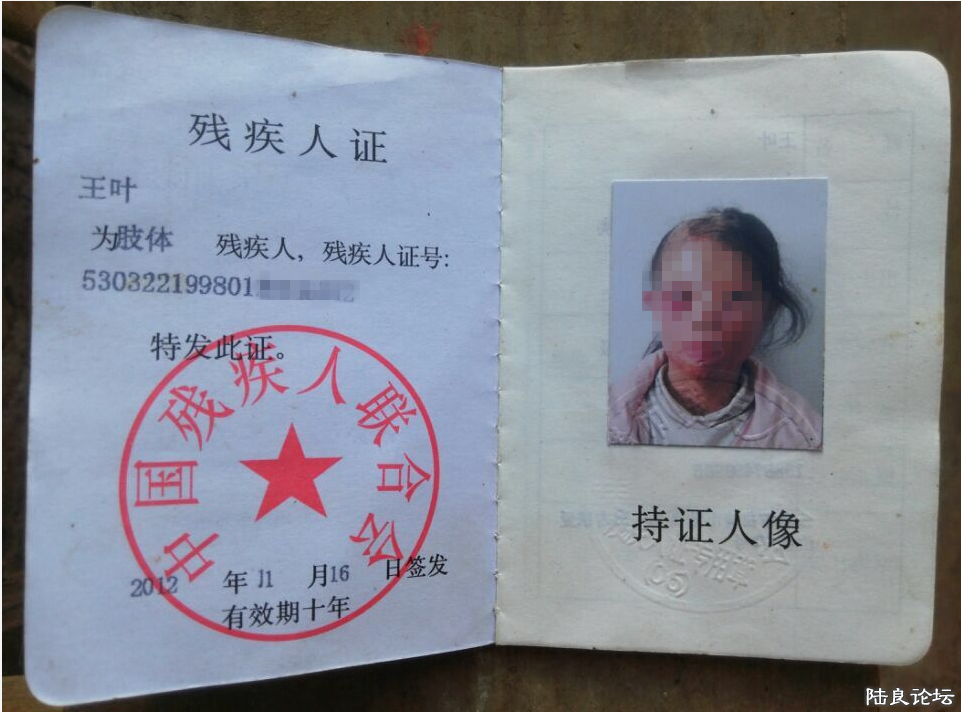 残疾人证
王叶
为肢体 残疾人，残疾人证号:
530322199801
特发此证。
中国残疾人联合会
2012 年 11 月 16 日签发
有效期十年
持证人像
陆良论坛